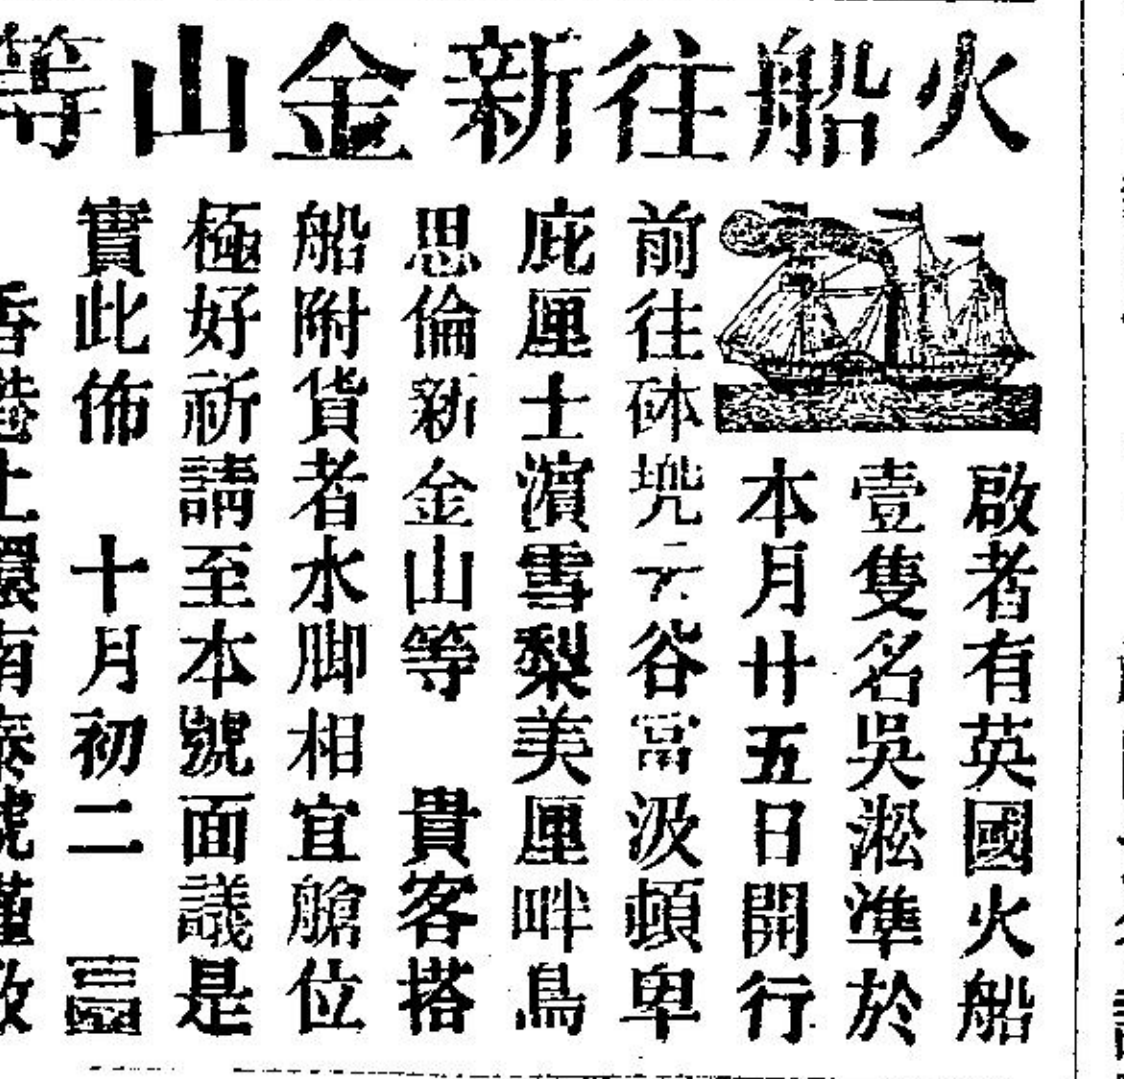 火船往新金山等
啟者有英國火船
壹隻名吳淞準於
本月廿五日開行
前往砵㙟云谷當汲頓卑
庇厘士濱雪梨美厘畔鳥
思倫新金山等 貴客搭
船附貨者水脚相宜艙位
極好祈請至本號面議是
實此佈 十月初二
香港上環南泰號謹啟